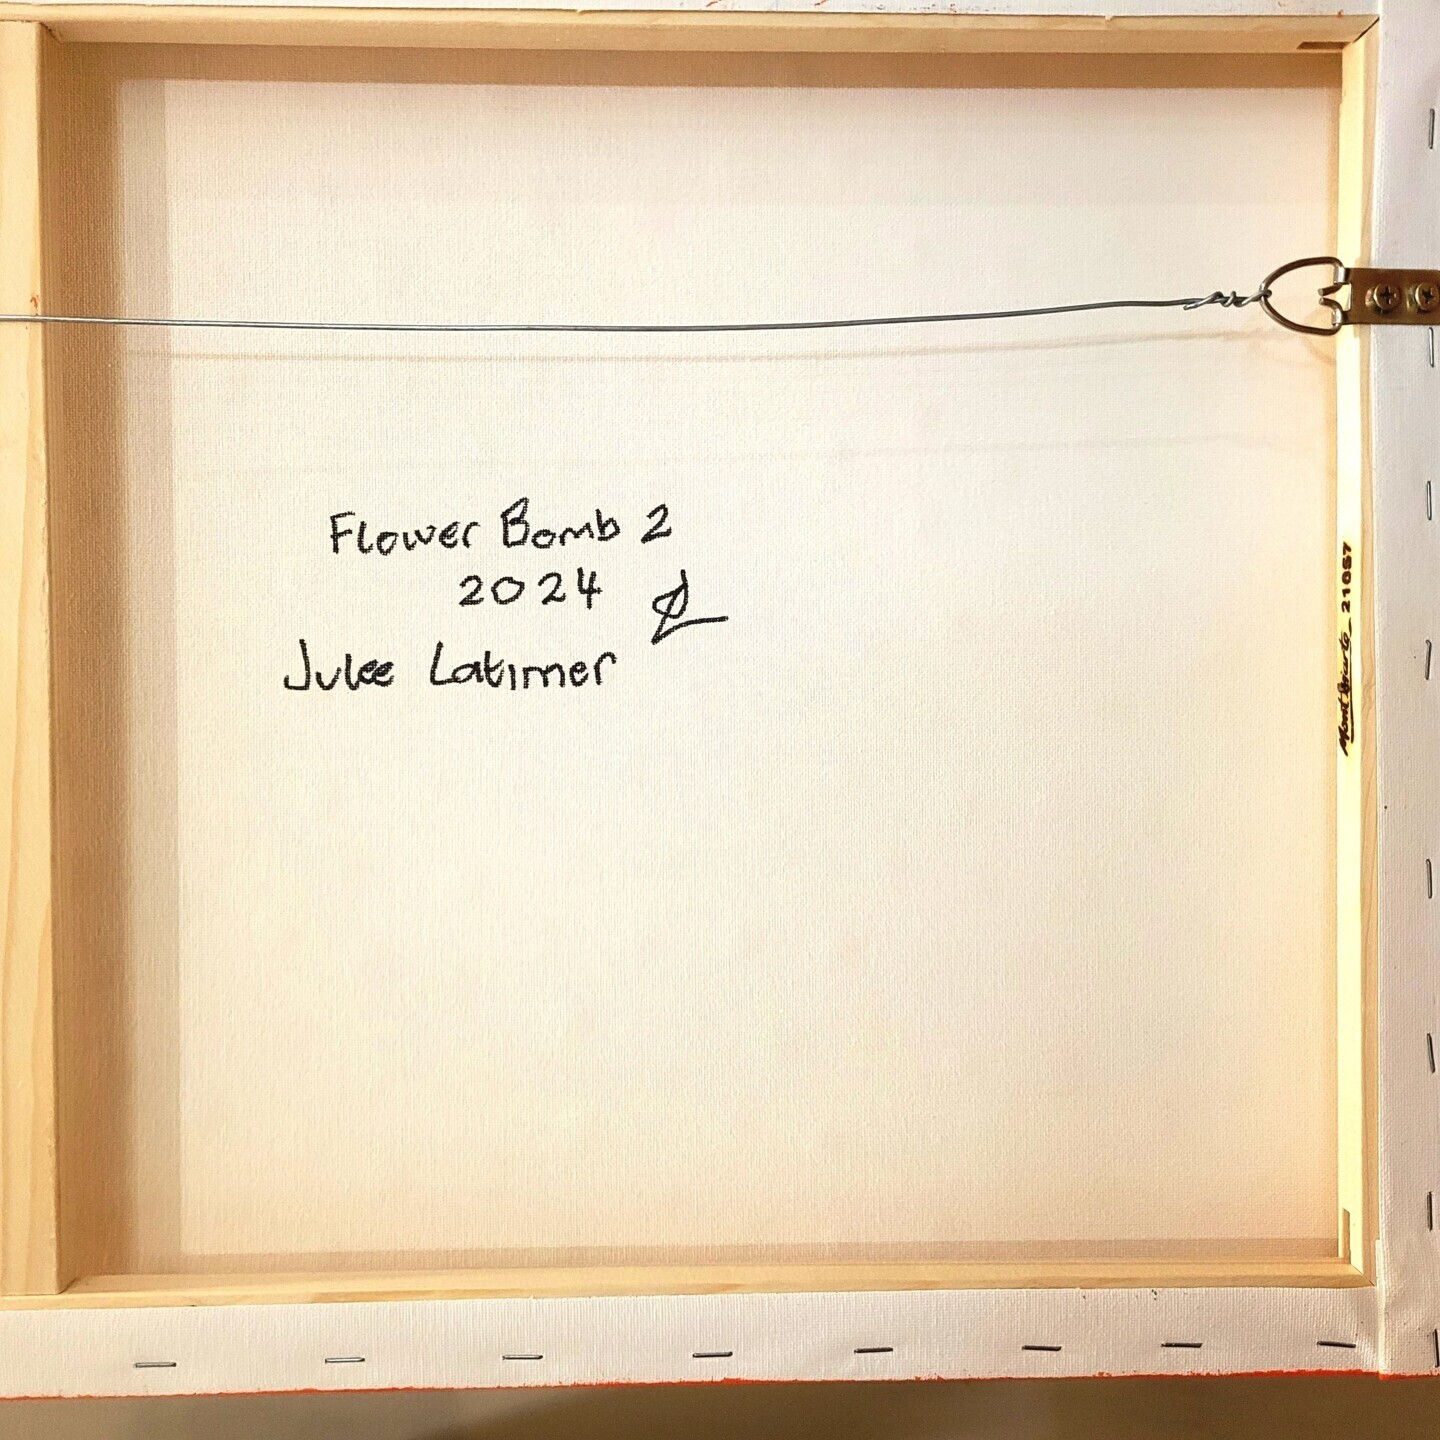 Flower Bomb 2
2024
Julee Latimer
Mont Marte 21057